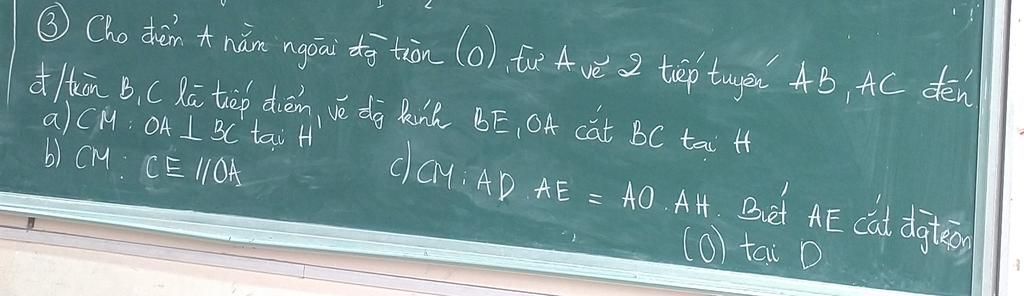 ③ Cho điểm A nằm ngoài đg tròn (O), từ A vẽ 2 tiếp tuyến AB, AC đến
đ/tròn B, C là tiếp điểm, vẽ đg kính BE, OA cắt BC tại H
a) CM: OA ⊥ BC tại H
b) CM: CE // OA
c) CM: AD . AE = AO . AH. Biết AE cắt đg tròn
(O) tại D